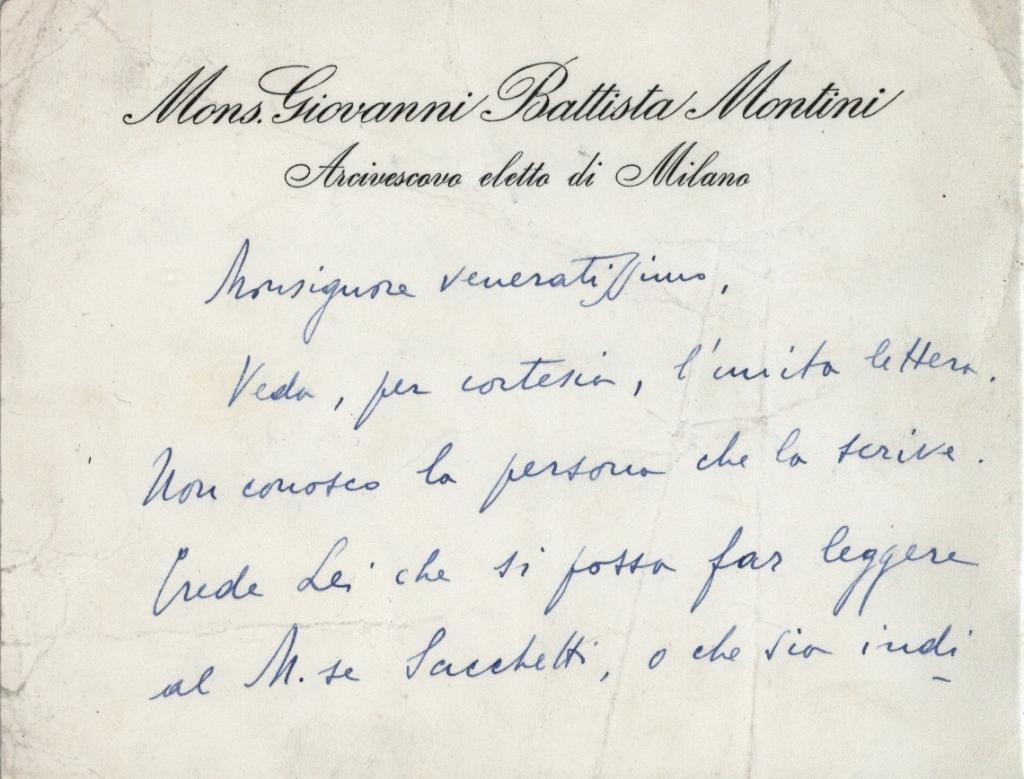 Mons. Giovanni Battista Montini
Arcivescovo eletto di Milano
Monsignore veneratissimo,
Veda, per cortesia, l'unita lettera.
Non conosco la persona che la scrive.
Crede Lei che si possa far leggere
al M.se Sacchetti, o che sia indi